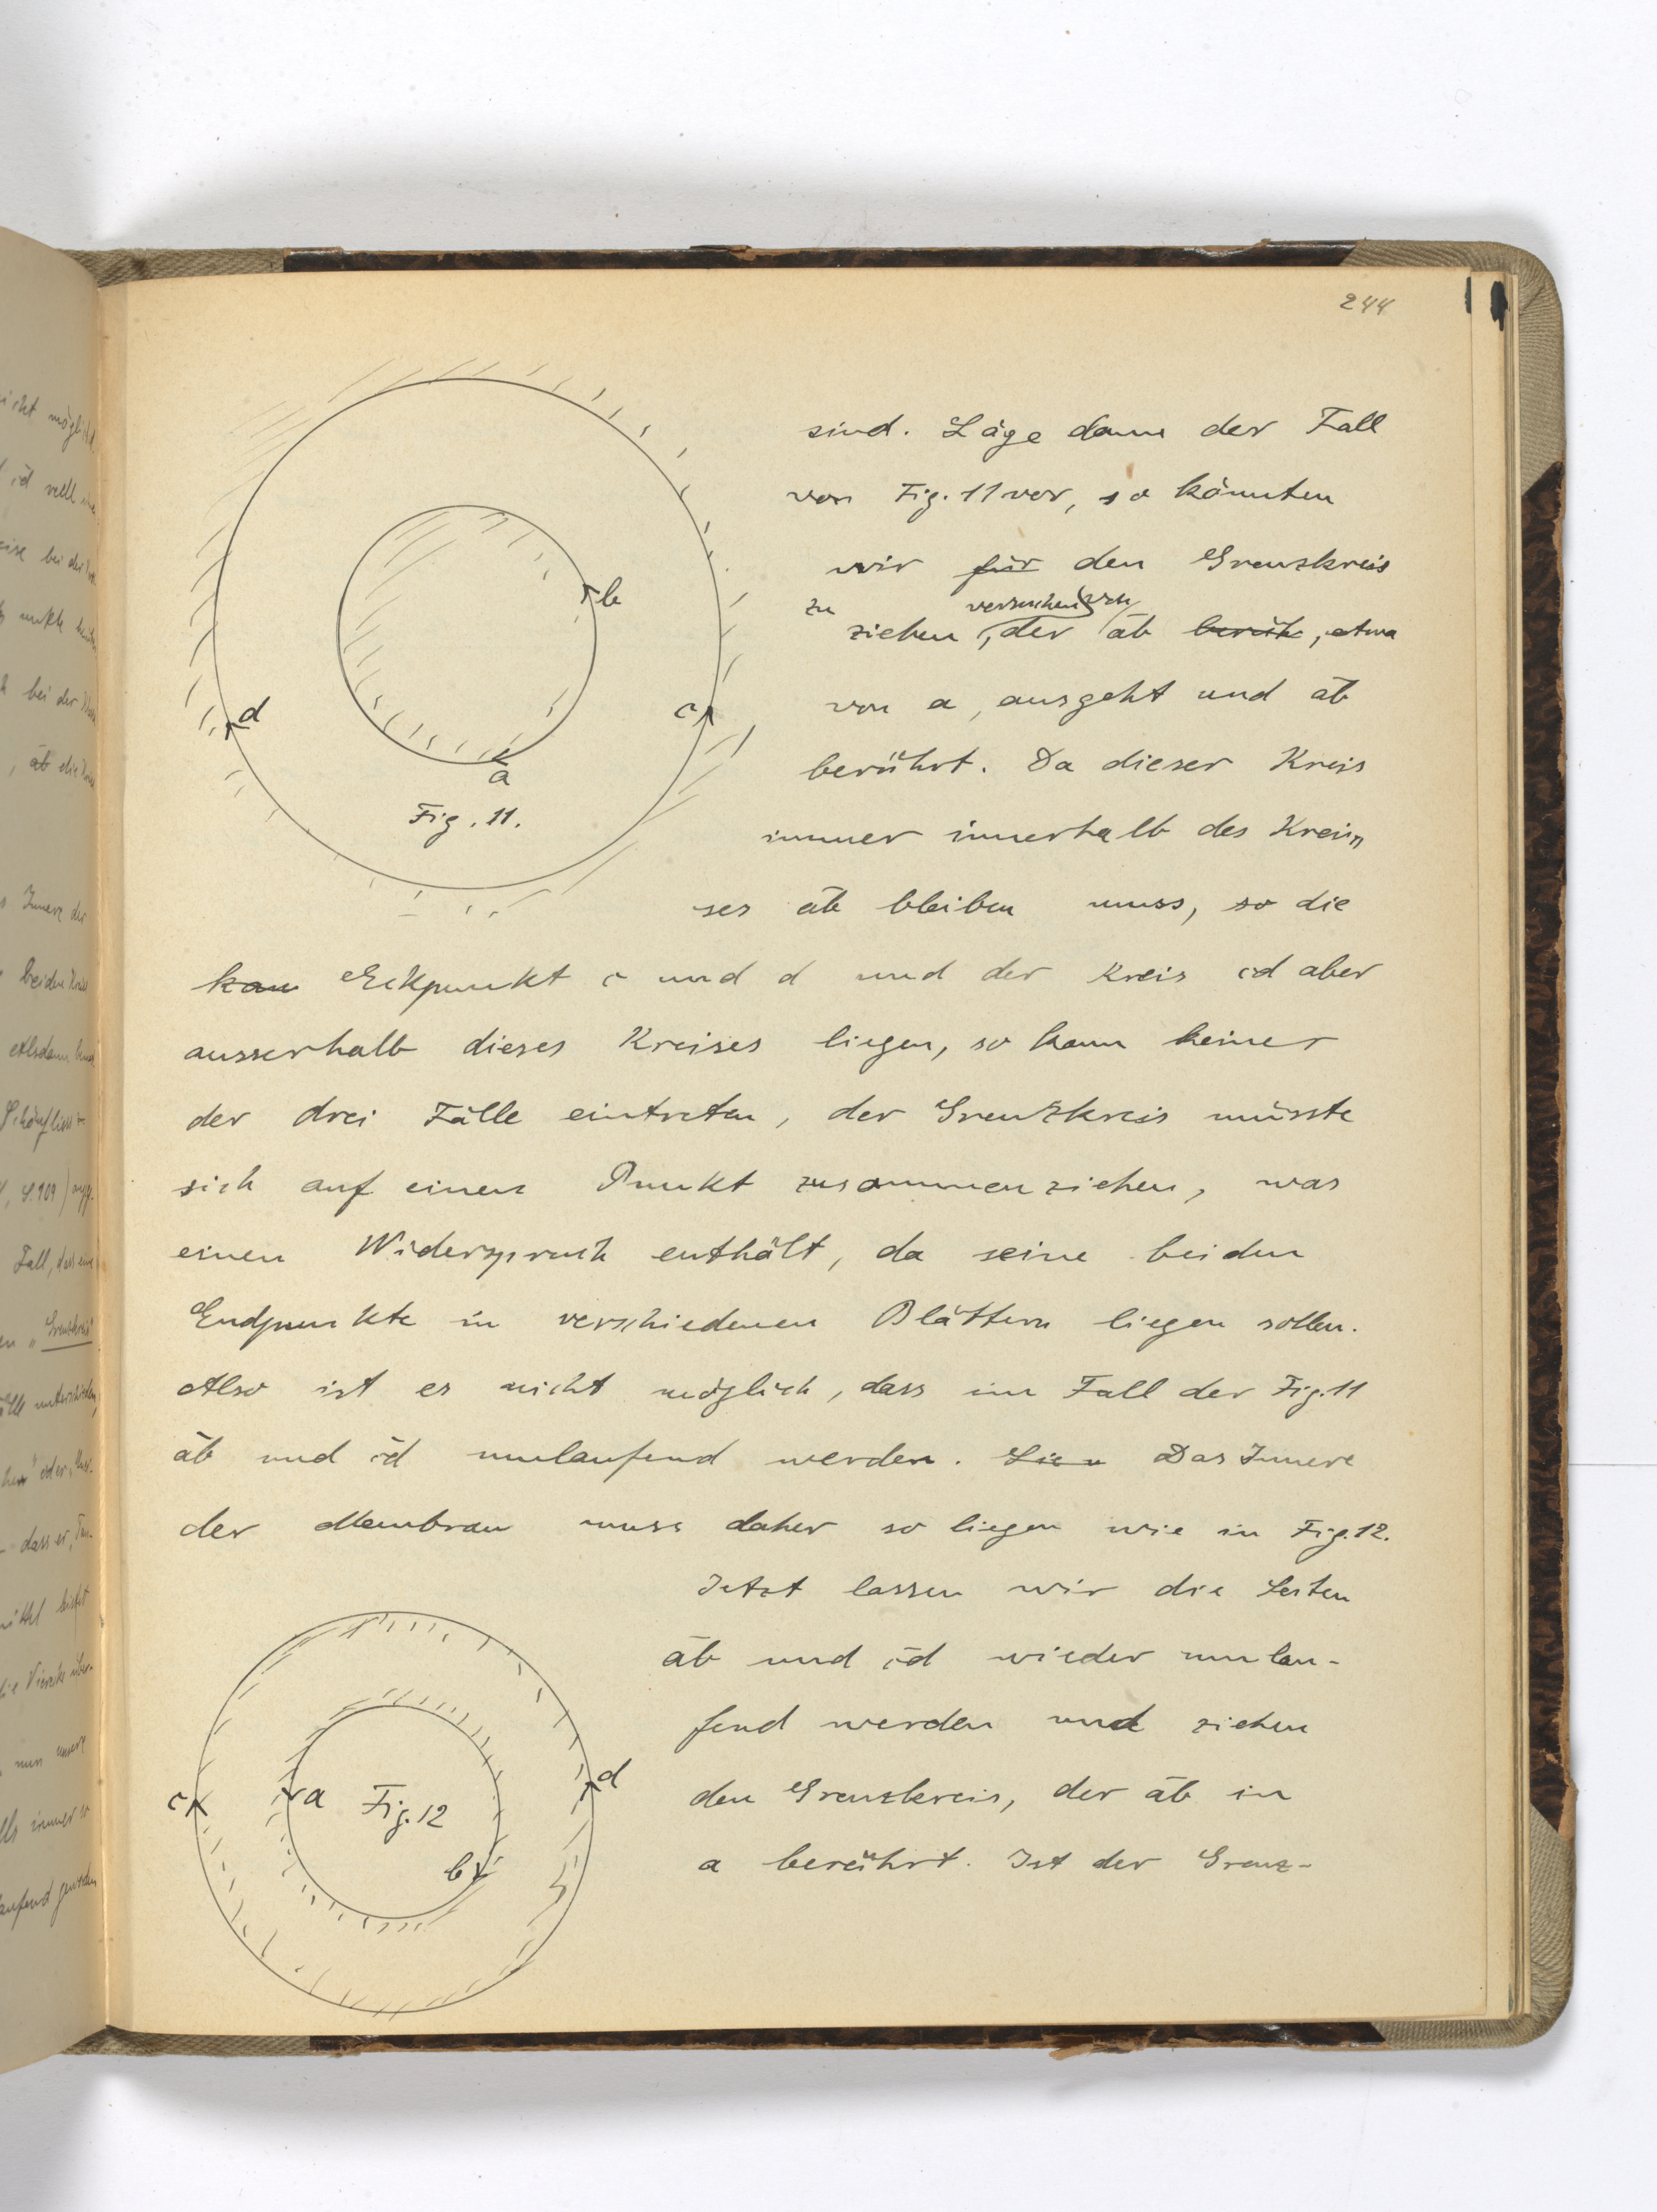 244
sind. Läge dann der Fall
von Fig. 11 vor, so könnten
wir für den Grenzkreis
zu versuchen von
ziehen, der ab berüh, etwa
von a, ausgeht und ab
berührt. Da dieser Kreis
immer innerhalb des Kreis
ses ab bleiben muss, so die
kan Eckpunkt c und d und der Kreis cd aber
ausserhalb dieses Kreises liegen, so kann keiner
der drei Fälle eintreten, der Grenzkreis müsste
sich auf einen Punkt zusammenziehen, was
einen Widerspruch enthält, da seine beiden
Endpunkte in verschiedenen Blättern liegen sollen.
Also ist es nicht möglich, dass im Fall der Fig. 11
ab und cd umlaufend werden. Das Innere
der Membran muss daher so liegen wie in Fig. 12.
Jetzt lassen wir die Seiten
ab und cd wieder umlau-
fend werden und ziehen
den Grenzkreis, der ab in
a berührt. Ist der Grenz-
b
d
c
a
Fig. 11.
c
a
Fig. 12
d
b